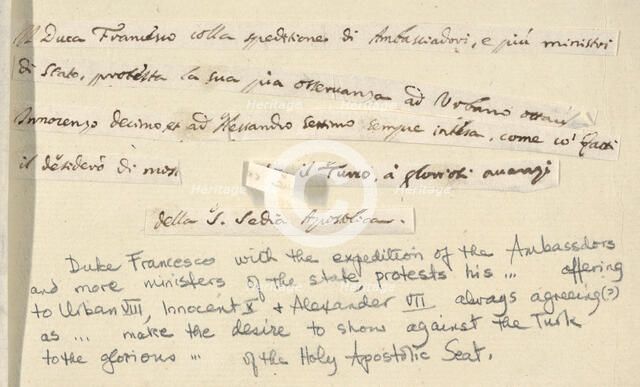 Il Duca Francesco colla speditione di Ambasciadori, e più ministri
di Stato, protesta la sua pia osservanza ad Urbano ottavo
Innocenzo decimo, et ad Alessandro Settimo sempre intesa, come co' fatti
il desiderò di mos il Turco, à gloriosi avanzi
della S. Sedia Apostolica.
Duke Francesco with the expedition of the Ambassdors
and more ministers of the state protests his ... offering
to Urban VIII, Innocent X + Alexander VII always agreeing(?)
as ... make the desire to show against the Turk
to the glorious ... of the Holy Apostolic Seat.